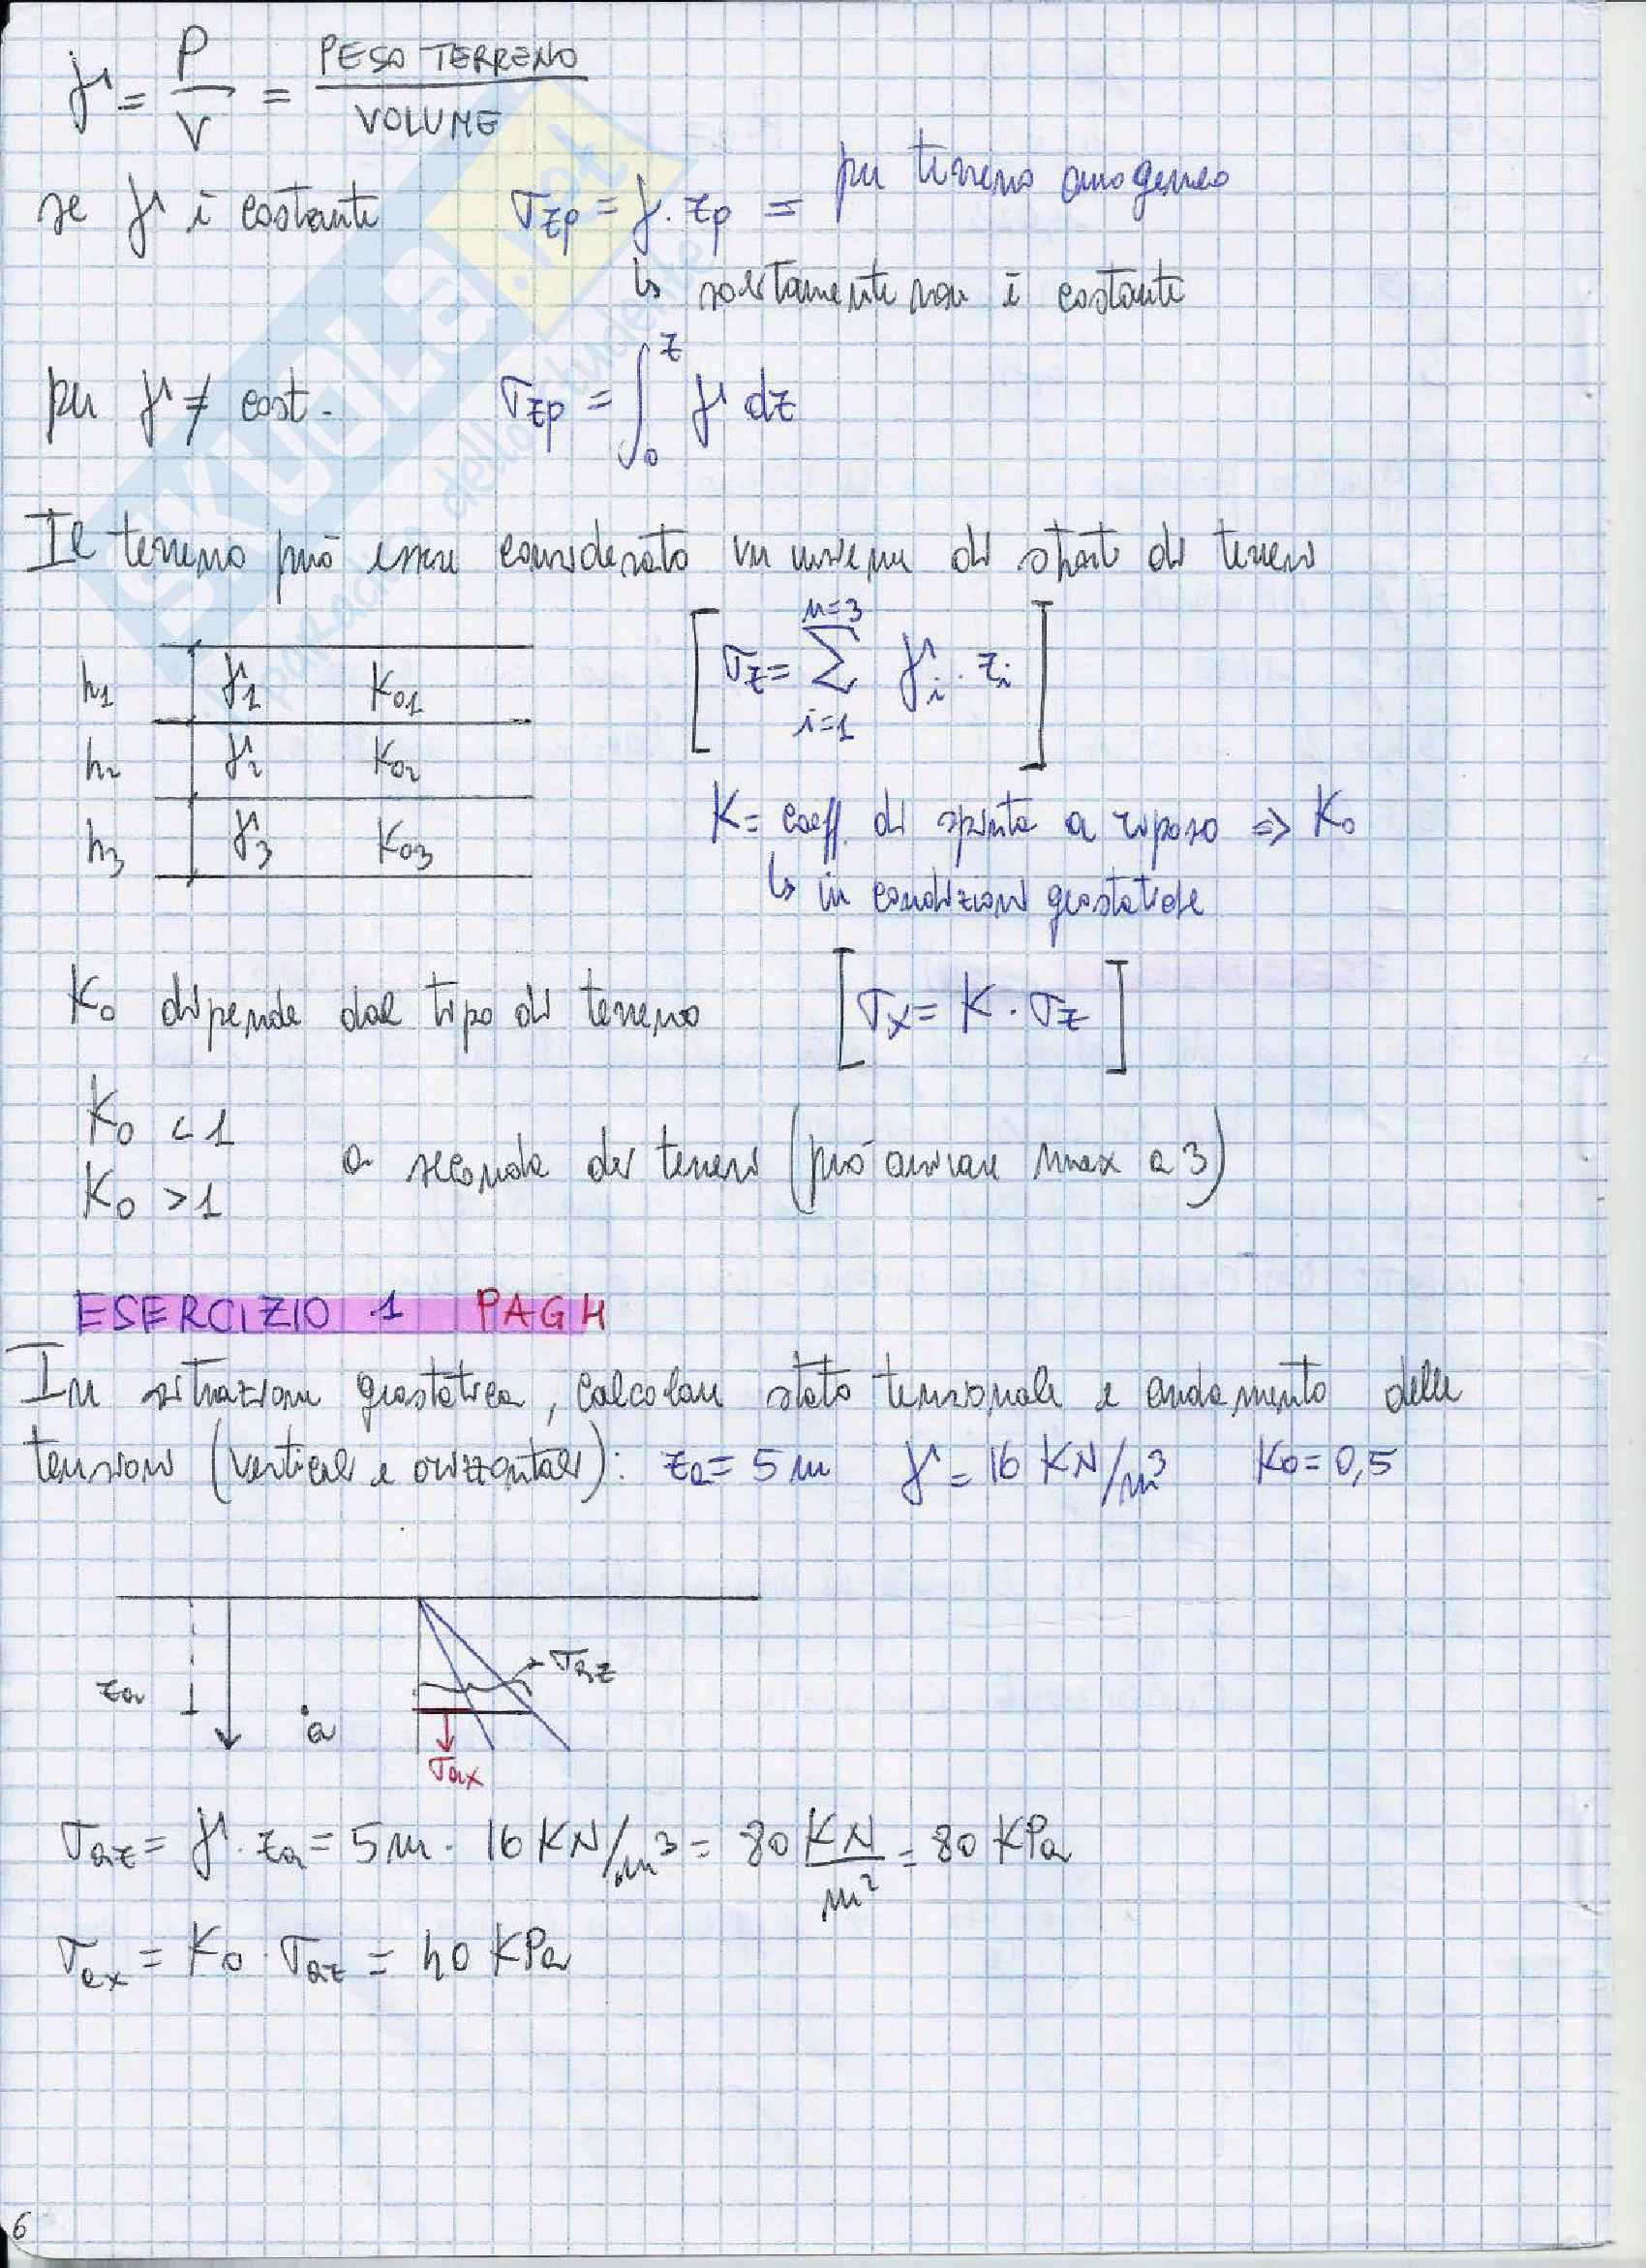 γ = P/V = PESO TERRENO / VOLUME
se γ è costante σzp = γ · zp = per terreno omogeneo
↳ solitamente non è costante
per γ ≠ cost. σzp = ∫₀ᶻ γ dz
Il terreno può essere considerato un insieme di strati di terreni
h1 γ1 K01
h2 γ2 K02
h3 γ3 K03
[σz = Σ γi · zi] n=3 i=1
K = coeff. di spinta a riposo ⇒ K0
↳ in condizioni geostatiche
K0 dipende dal tipo di terreno [σx = K · σz]
K0 < 1
K0 > 1
a seconda dei terreni (può arrivare max a 3)
ESERCIZIO 1 PAG 4
In situazione geostatica, calcolare stato tensionale e andamento delle
tensioni (verticali e orizzontali): za = 5 m γ = 16 KN/m³ K0 = 0,5
σaz
za
a
σax
σaz = γ · za = 5 m · 16 KN/m³ = 80 KN/m² = 80 KPa
σax = K0 · σaz = 40 KPa
6
SKUOLA.net
il paradiso dello studente